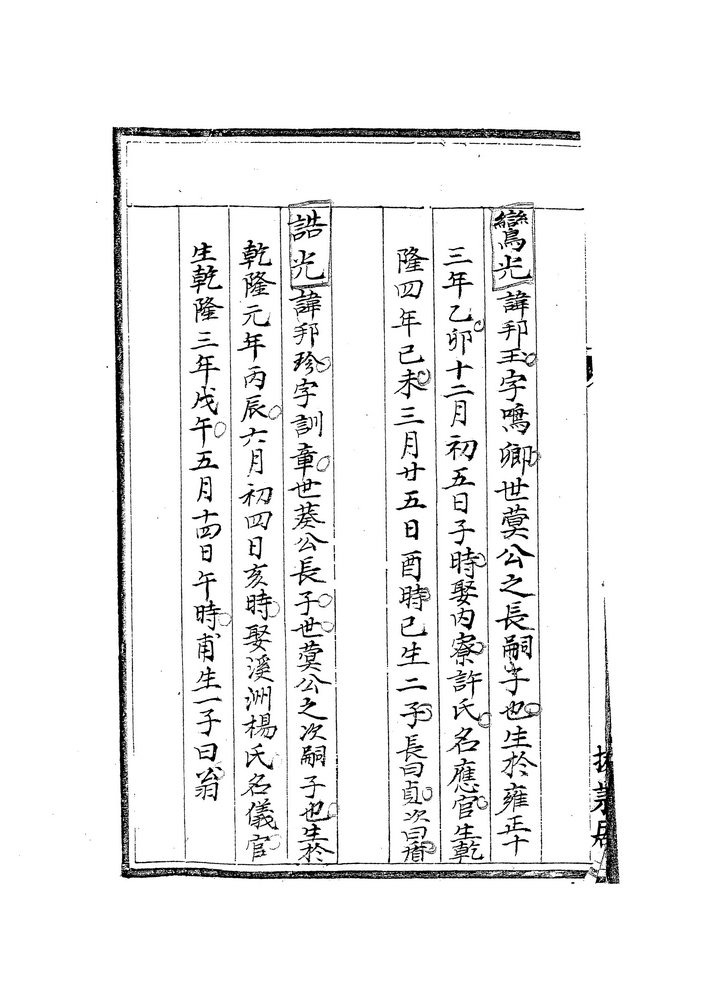 鸞光諱邦玉字鳴卿世蓂公之長嗣子也生於雍正十
三年乙卯十二月初五日子時娶內寮許氏名應官生乾
隆四年己未三月廿五日酉時已生二子長曰貞次曰
誥光諱邦珍字訓章世葵公長子世蓂公之次嗣子也生於
乾隆元年丙辰六月初四日亥時娶溪洲楊氏名儀官
生乾隆三年戊午五月十四日午時甫生一子曰翁